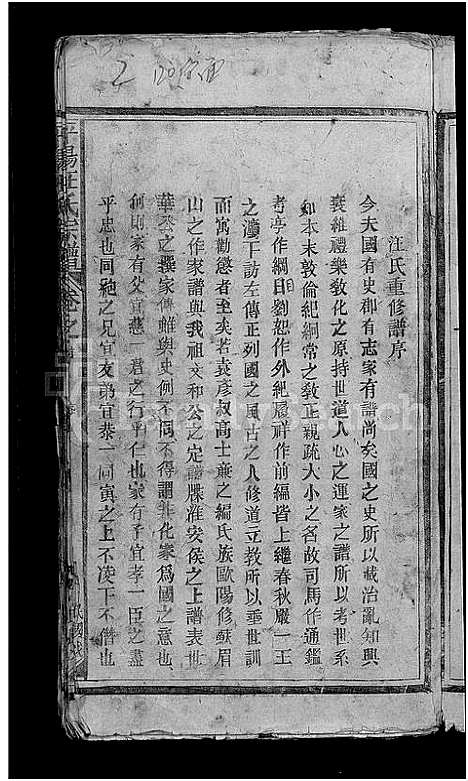 汪氏重修譜序
今夫國有史郡有志家有譜尚矣國之史所以載治亂知興
衰維禮樂敎化之原持世道人心之運家之譜所以考世系
知本末敦倫紀綱常之敎正親疏大小之名故司馬作通鑑
考亭作綱目劉恕作外紀履祥作前編皆上繼春秋嚴一王
之漢下訪左傳正列國之風古之人修道立敎所以垂世訓
而寓勸懲者至矣若袁彦叔高士亷之編氏族歐陽修蘇眉
山之作家譜與我祖文和公之定譜牒淮安侯之上譜表世
華癸之譔家傳雖與史例不同不得謂非化家爲國之意也
何則家有父宜慈一君之行乎仁也家有子宜孝一臣之盡
乎忠也同祂之兄宜友弟宜恭一同寅之上不凌下不僭也
平陽汪氏宗譜 卷之首